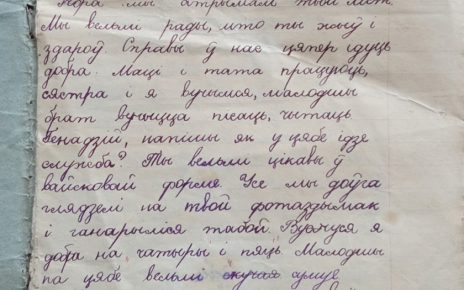 мы атрымалі твой ліст.
Мы вельмі рады, што ты жыў і
здароў Справы ў нас цяпер ідуць
добра. Маці і тата працуюць,
сястра і я вучымся, малодшы
брат вучыцца пісаць, чытаць
Генадзій, напішы як у цябе ідзе
служба? Ты вельмі цікавы ў
вайсковай форме. Усе мы доўга
глядзелі на твой фотаздымак
і ганарыліся табой. Вучуся я
добра на чатыры і пяць. Малодшы
па цябе вельмі скучая сумуе